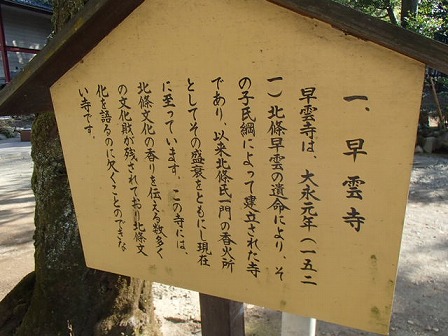 一、早雲寺
早雲寺は、大永元年(一五二
一)北條早雲の遺命により、そ
の子氏綱によって建立された寺
であり、以来北條氏一門の香火所
としてその盛衰をともにし現在
に至っています。この寺には、
北條文化の香りを伝える数多く
の文化財が残されており北條文
化を語るのに欠くことのできな
い寺です。